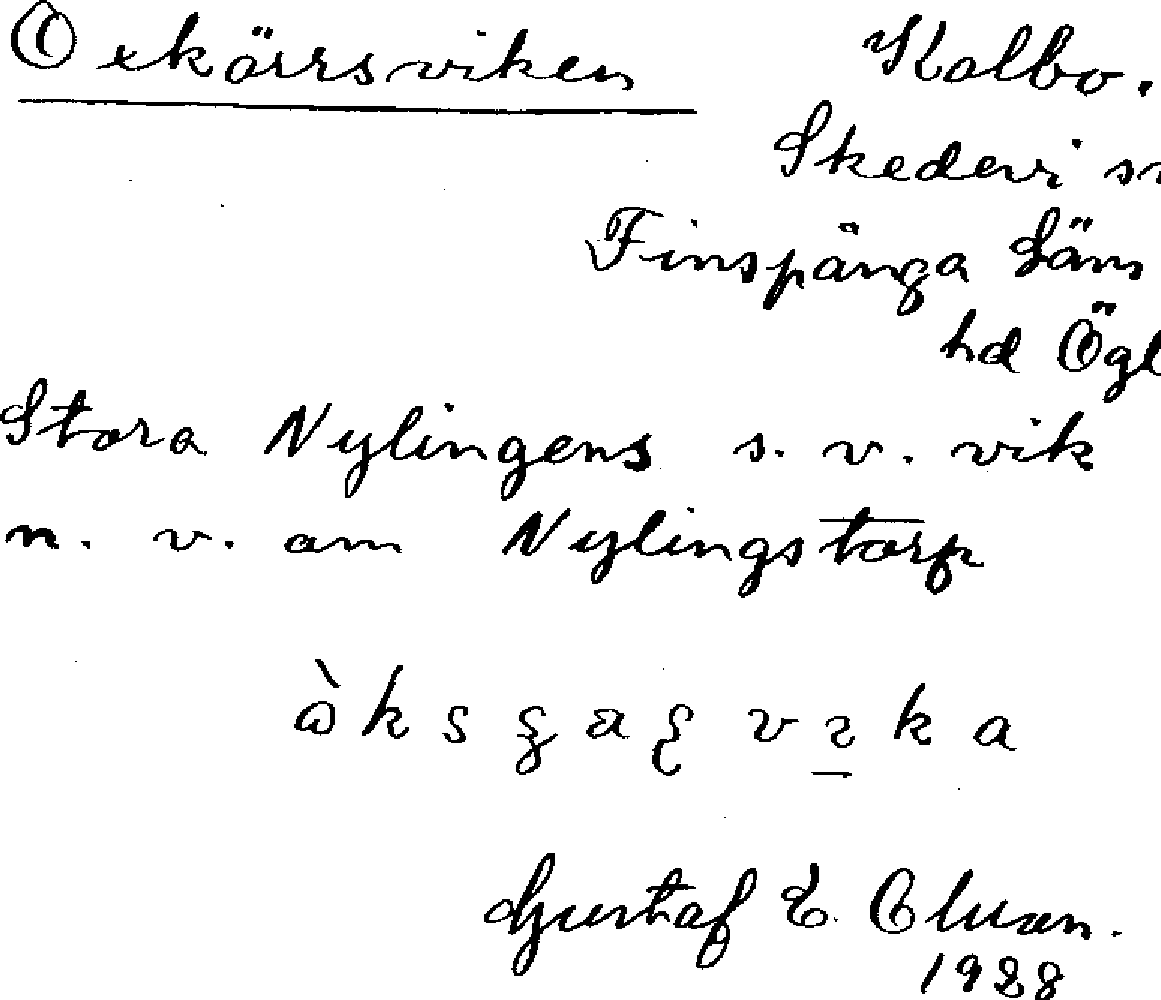 Oxkärrsviken Kolbo.
Skedevi sn
Finspånga Läns
hd Ögl
Stora Nylingens s. v. vik
n. v. om Nylingstorp
Gustaf E. Cluan.
1928